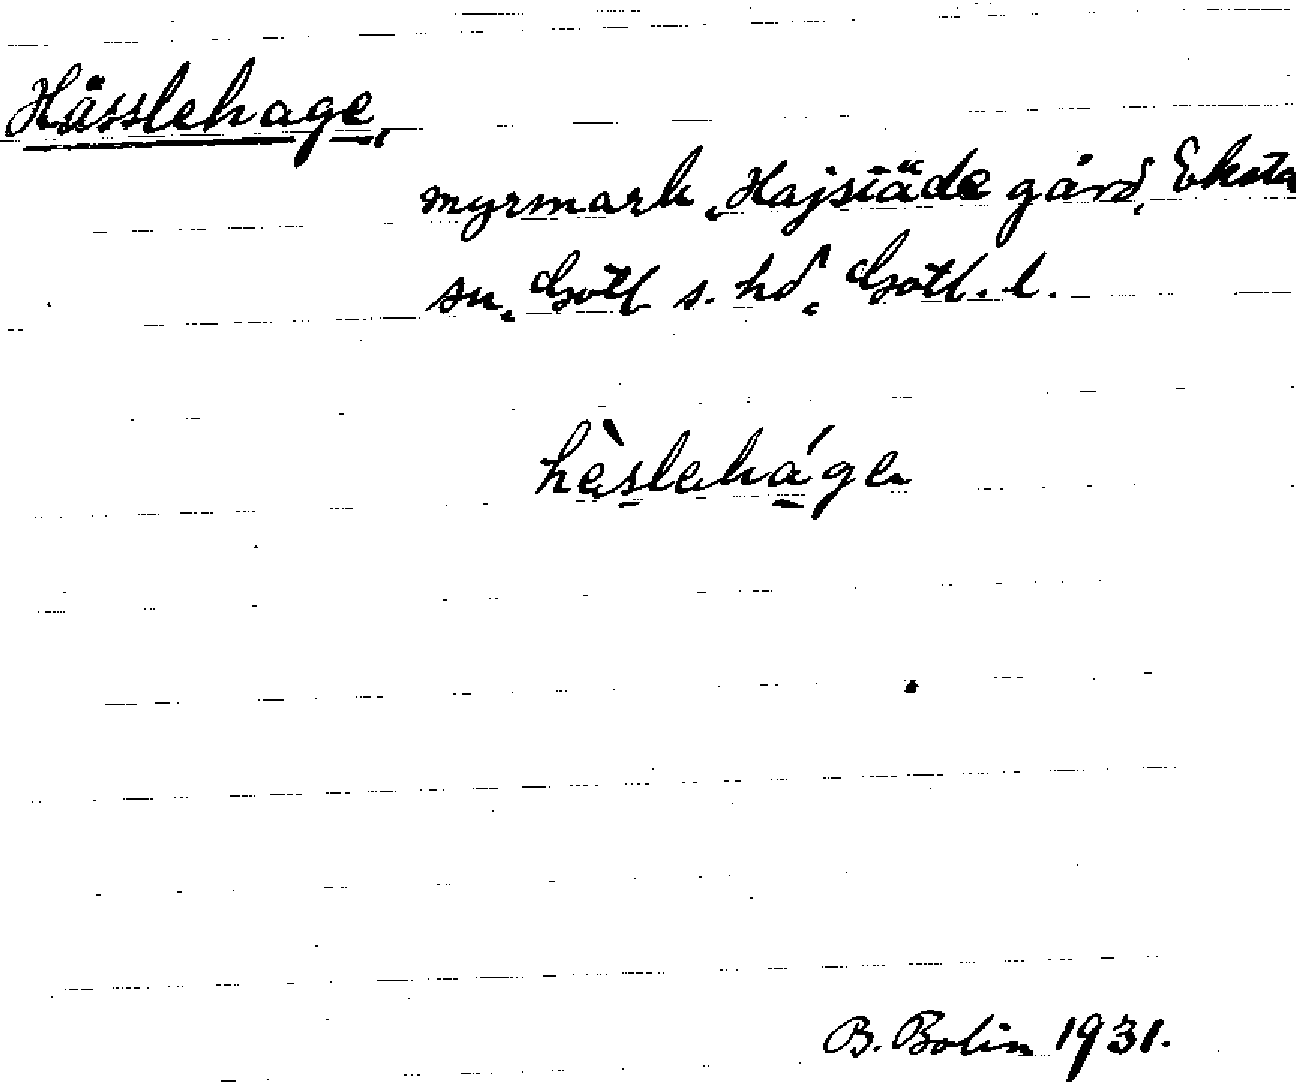 Hässlehage,
myrmark, Hajstäde gård, Eksta
sn, Gotl s. hd, Gotl. l.
hèslehágen
B. Bolin 1931.